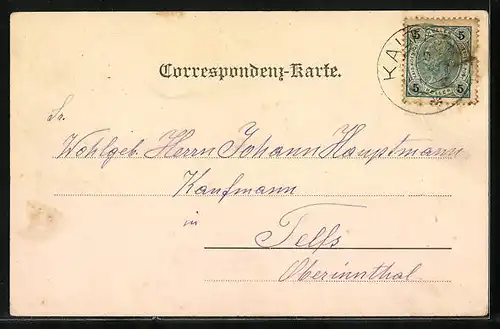 Correspondenz-Karte.
KAL
5 5
5 5
Sr.
Wohlgeb. Herrn Johann Hauptmann
Kaufmann
in
Telfs
Oberinnthal